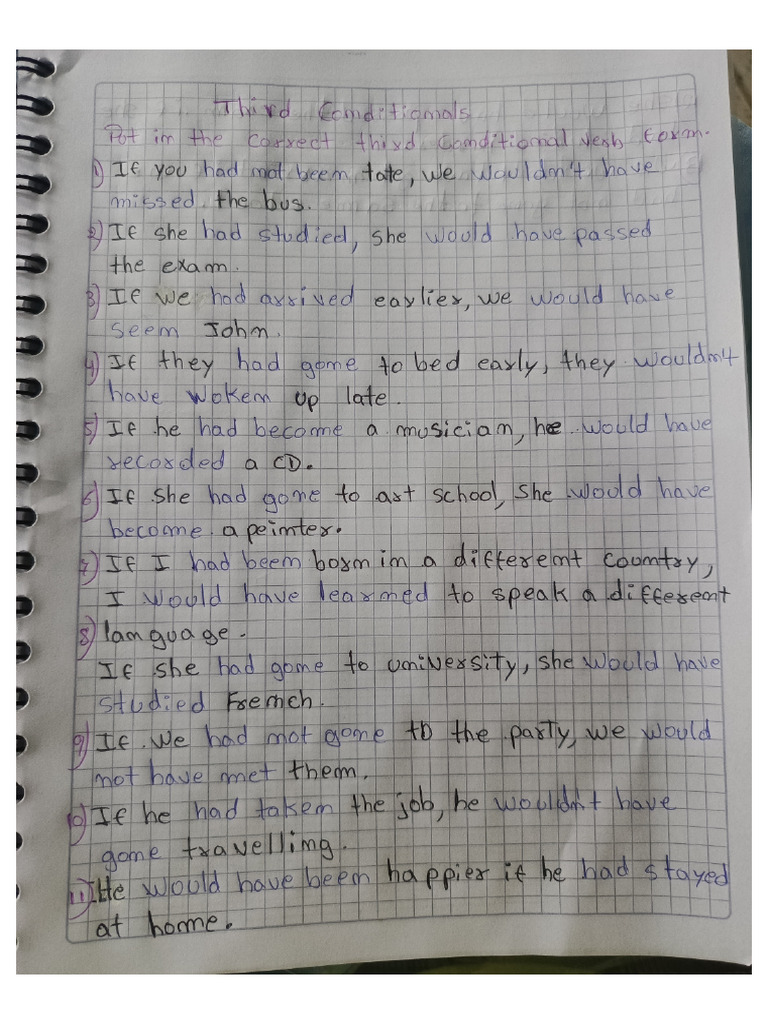 Third Conditionals
Put in the correct third conditional verb form.
1) If you had not been tate, we wouldn't have
missed the bus.
2) If she had studied, she would have passed
the exam.
3) If we had arrived earlier, we would have
seen John.
4) If they had gone to bed early, they wouldn't
have woken up late.
5) If he had become a musician, he would have
recorded a CD.
6) If she had gone to art school, she would have
become a peinter.
7) If I had been born in a different country,
I would have learned to speak a different
8) language.
If she had gone to university, she would have
studied French.
9) If we had not gone to the party, we would
not have met them.
10) If he had taken the job, he wouldn't have
gone travelling.
11) He would have been happier if he had stayed
at home.